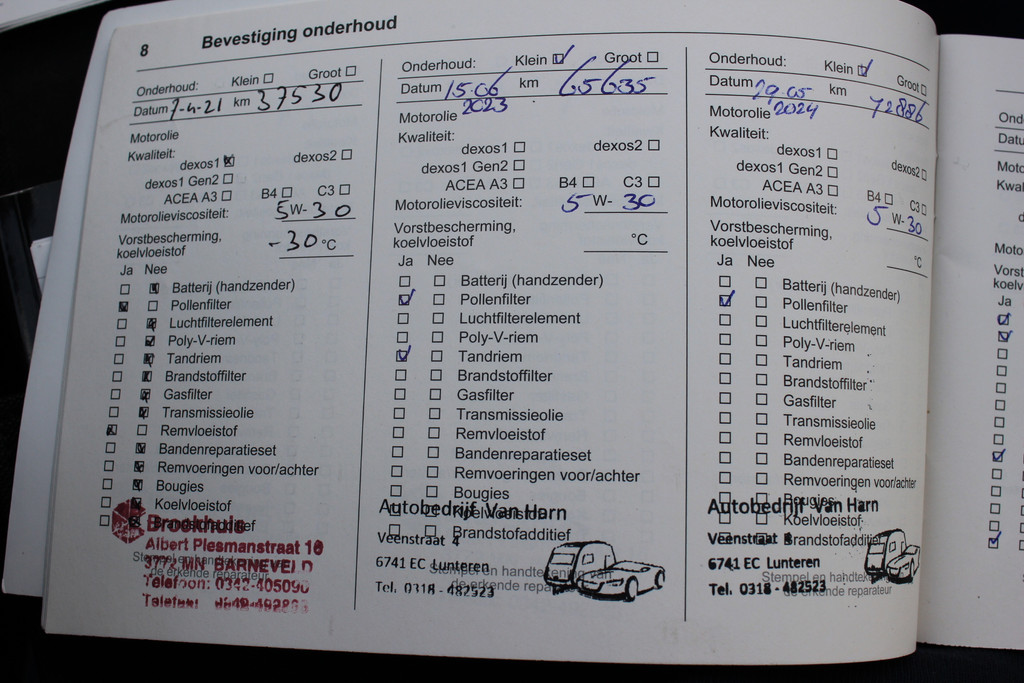 8 Bevestiging onderhoud
Onderhoud: Klein ☐ Groot ☐
Datum 7-4-21 km 37530
Motorolie
Kwaliteit:
dexos1 ☒ dexos2 ☐
dexos1 Gen2 ☐
ACEA A3 ☐ B4 ☐ C3 ☐
Motorolieviscositeit: 5 W- 30
Vorstbescherming,
koelvloeistof -30 °C
Ja Nee
☐ ☒ Batterij (handzender)
☒ ☐ Pollenfilter
☐ ☒ Luchtfilterelement
☐ ☒ Poly-V-riem
☐ ☒ Tandriem
☐ ☒ Brandstoffilter
☐ ☒ Gasfilter
☐ ☒ Transmissieolie
☒ ☐ Remvloeistof
☐ ☒ Bandenreparatieset
☐ ☒ Remvoeringen voor/achter
☐ ☒ Bougies
☐ ☒ Koelvloeistof
☐ ☒ Brandstofadditief
Broekhuis
Albert Plesmanstraat 10
3772 MN BARNEVELD
Stempel en handtekening van
de erkende reparateur
Telefoon: 0342-405090
Onderhoud: Klein ☑ Groot ☐
Datum 15-06 2023 km 65635
Motorolie
Kwaliteit:
dexos1 ☐ dexos2 ☐
dexos1 Gen2 ☐
ACEA A3 ☐ B4 ☐ C3 ☐
Motorolieviscositeit: 5 W- 30
Vorstbescherming,
koelvloeistof °C
Ja Nee
☐ ☐ Batterij (handzender)
☑ ☐ Pollenfilter
☐ ☐ Luchtfilterelement
☐ ☐ Poly-V-riem
☑ ☐ Tandriem
☐ ☐ Brandstoffilter
☐ ☐ Gasfilter
☐ ☐ Transmissieolie
☐ ☐ Remvloeistof
☐ ☐ Bandenreparatieset
☐ ☐ Remvoeringen voor/achter
☐ ☐ Bougies
☐ ☐ Koelvloeistof
☐ ☐ Brandstofadditief
Autobedrijf Van Harn
Veenstraat 4
6741 EC Lunteren
Tel. 0318 - 482523
Stempel en handtekening van
de erkende reparateur
Onderhoud: Klein ☑ Groot ☐
Datum 29-05 2024 km 72886
Motorolie
Kwaliteit:
dexos1 ☐ dexos2 ☐
dexos1 Gen2 ☐
ACEA A3 ☐ B4 ☐ C3 ☐
Motorolieviscositeit: 5 W- 30
Vorstbescherming,
koelvloeistof °C
Ja Nee
☐ ☐ Batterij (handzender)
☑ ☐ Pollenfilter
☐ ☐ Luchtfilterelement
☐ ☐ Poly-V-riem
☐ ☐ Tandriem
☐ ☐ Brandstoffilter
☐ ☐ Gasfilter
☐ ☐ Transmissieolie
☐ ☐ Remvloeistof
☐ ☐ Bandenreparatieset
☐ ☐ Remvoeringen voor/achter
☐ ☐ Bougies
☐ ☐ Koelvloeistof
☐ ☐ Brandstofadditief
Autobedrijf Van Harn
Veenstraat
6741 EC Lunteren
Tel. 0318 - 482523
Stempel en handtek
de erkende reparateur
Ond
Datu
Moto
Kwa
Moto
Vorst
koelv
Ja